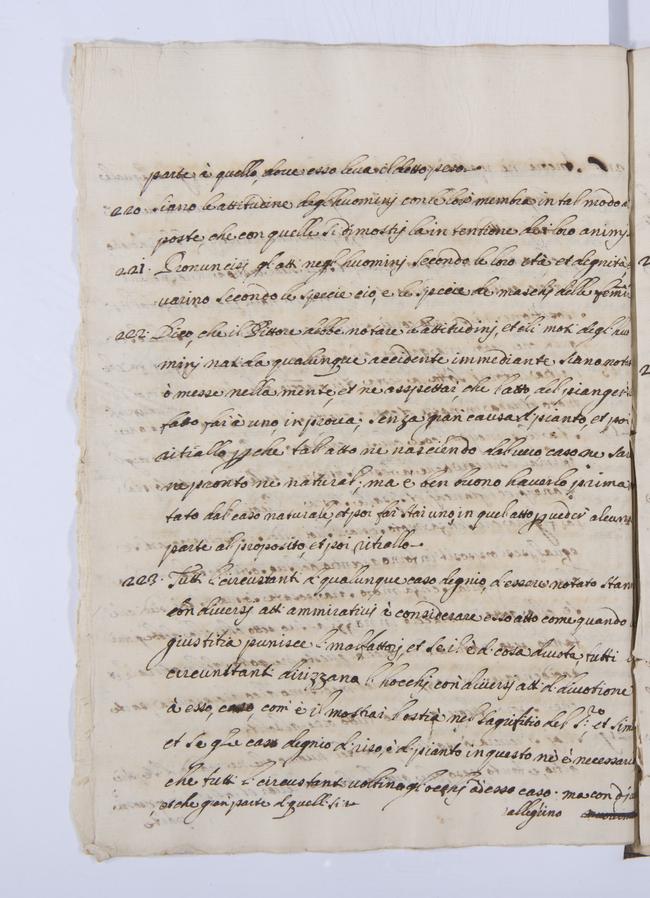 parte à quello, doue esso leua il detto peso.
220. Siano le attitudine degl'huominj con le lor membra in tal modo
poste che con quelle si dimostrj la intentione dei loro animj.
221. Pronuncisj gl'atti negl'huominj secondo le loro età et degnità,
uarino secondo le specie cio, e le specie de maschj delle
222. Dico, che il Pittore abbe notare l'attitudinj, et li moti degl'
minj nati da qualunque accidente immediante siano
ò messe nella mente, et ne asspettar, che l'atto del pianger
fatto far à uno, in proua, senza gran causa di pianto, et poi
ritrallo perche tal'atto ne nasciendo dal uero caso ne sar
ne pronto ne natural; ma è ben buono hauerlo prima
tato dal caso naturale, et poi far star uno, in quel'atto per ueder alcuna
parte al proposito, et poi ritrallo.
223. Tutti li circustanti di qualunque caso degnio, d'essere notato stan
con diuersj atti ammiratiuj è considerare esso atto come quando
giustitia punisce li malfattorj et se il è di cosa diuota, tutti
circunstanti dirizzano li hocchj con diuersj atti di diuotione
à esso, caso com' è il mostrar l'ostia nel sagrifitio del et sim
et se gl'e caso degnio di riso, è di pianto in questo nè è necessario
che tutti li circustanti uoltino gl'occhj ad esso caso. ma con
et che gran parte di quelli si ra rallegrino